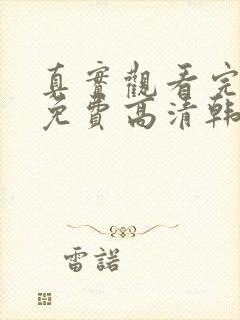 真實觀看完
免費高清韩
雷諾